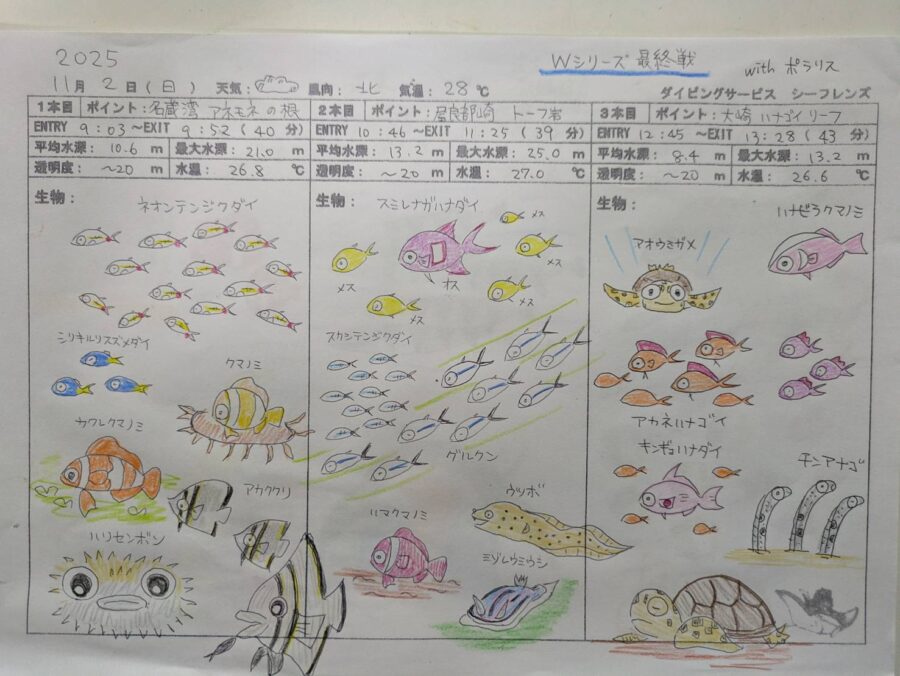 2025
Wシリーズ 最終戦
with ポラリス
11月 2日(日) 天気: 風向: 北 気温: 28℃
ダイビングサービス シーフレンズ
1本目 ポイント: 名蔵湾 アネモネの根
ENTRY 9:03〜EXIT 9:52 (40分)
平均水深: 10.6 m 最大水深: 21.0 m
透明度: 〜20 m 水温: 26.8 ℃
生物:
ネオンテンジクダイ
シリキルリスズメダイ
クマノミ
カクレクマノミ
アカククリ
ハリセンボン
2本目 ポイント: 屋良部崎 トーフ岩
ENTRY 10:46〜EXIT 11:25 (39分)
平均水深: 13.2 m 最大水深: 25.0 m
透明度: 〜20 m 水温: 27.0 ℃
生物:
スミレナガハナダイ
メス
メス
メス
オス
メス
メス
スカシテンジクダイ
グルクン
ウツボ
ハマクマノミ
ミゾレウミウシ
3本目 ポイント: 大崎 ハナゴイリーフ
ENTRY 12:45〜EXIT 13:28 (43分)
平均水深: 8.4 m 最大水深: 13.2 m
透明度: 〜20 m 水温: 26.6 ℃
生物:
ハナビラクマノミ
アオウミガメ
アカネハナゴイ
キンギョハナダイ
チンアナゴ